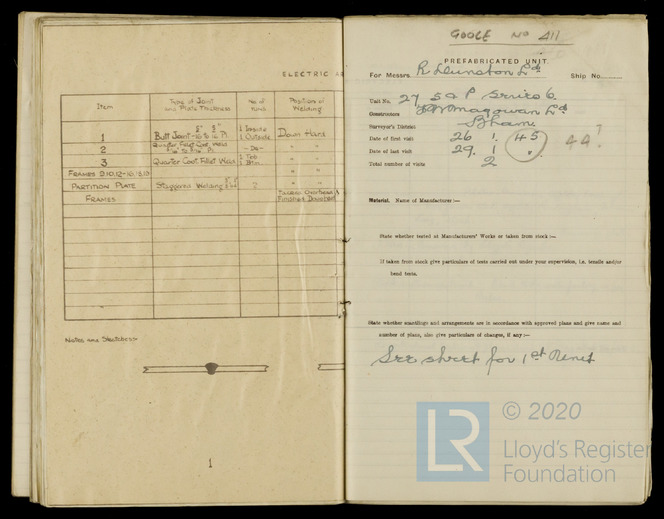 ELECTRIC
Item
Type of Joint and Plate Thickness
No of Runs
Position of Welding
1
Butt Joint
1 Inside
1 Outside
Down Hand
2
Quarter Coat Weld
- Do -
" "
3
Quarter Coat Fillet Weld
1 Top
1 Btm
" "
FRAMES
" "
PARTITION PLATE
Staggered Welding
2
" "
FRAMES
Tacked Overhead &
Finished Downhand
Notes and Sketches:-
1
GOOLE No 411
PREFABRICATED UNIT.
For Messrs. R Dunston Ld
Ship No.
Unit No. 27 S & P Series 6
Constructors Ld
Surveyor's District B'ham
Date of first visit 26 1. 45
44?
Date of last visit 29. 1 "
Total number of visits 2
Material. Name of Manufacturer:—
State whether tested at Manufacturers' Works or taken from stock:—
If taken from stock give particulars of tests carried out under your supervision, i.e. tensile and/or
bend tests.
State whether scantlings and arrangements are in accordance with approved plans and give name and
number of plans, also give particulars of changes, if any:—
See sheet for 1st
LR
© 2020
Lloyd's Register
Foundation